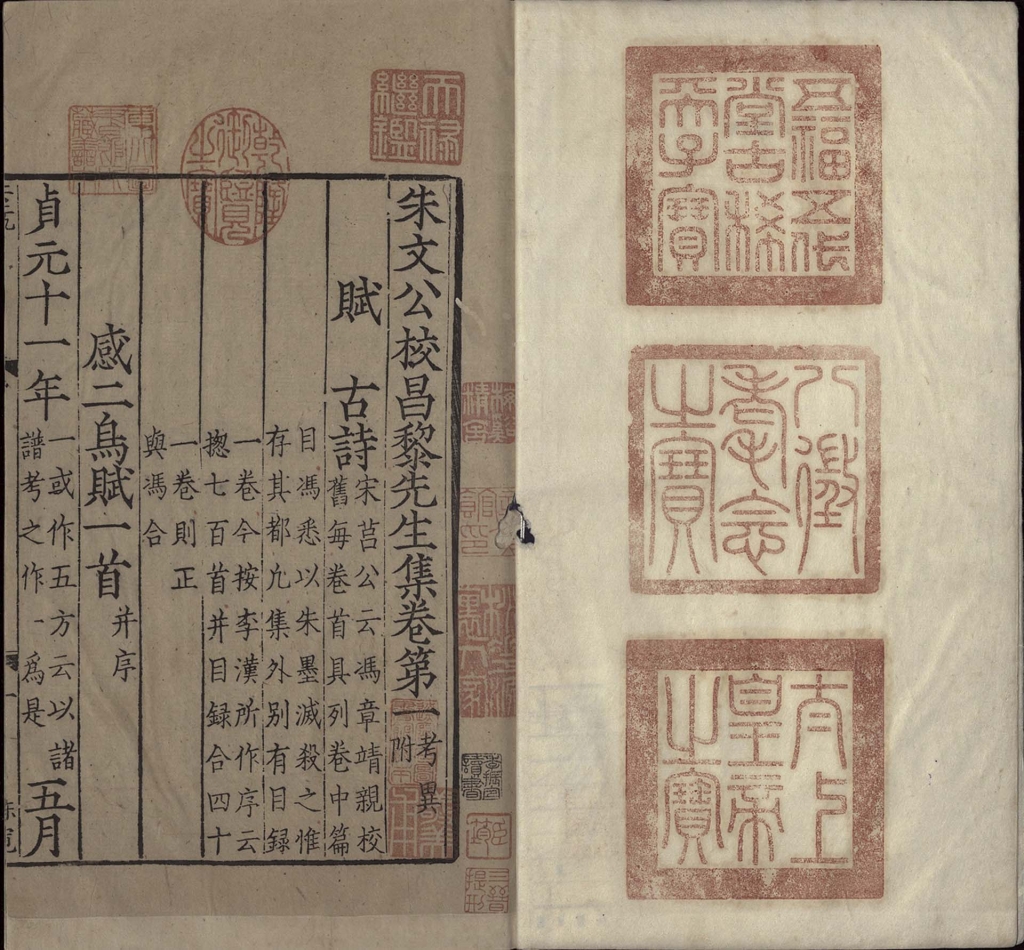 五福五代
堂古稀
天子寶
八徵
耄念
之寶
太上
皇帝
之寶
天祿
繼鑑
乾隆
御覽
之寶
朱文公校昌黎先生集卷第一
考異
附
賦 古詩
宋莒公云馮章靖親校
舊每卷首具列卷中篇
目馮悉以朱墨滅殺之惟
存其都凢集外別有目録
一卷今按李漢所作序云
揔七百首并目録合四十
一卷則正
與馮合
感二鳥賦一首
并序
貞元十一年
一或作五方云以諸
譜考之作一爲是
五月
梅谿
精舍
三晉
提刑